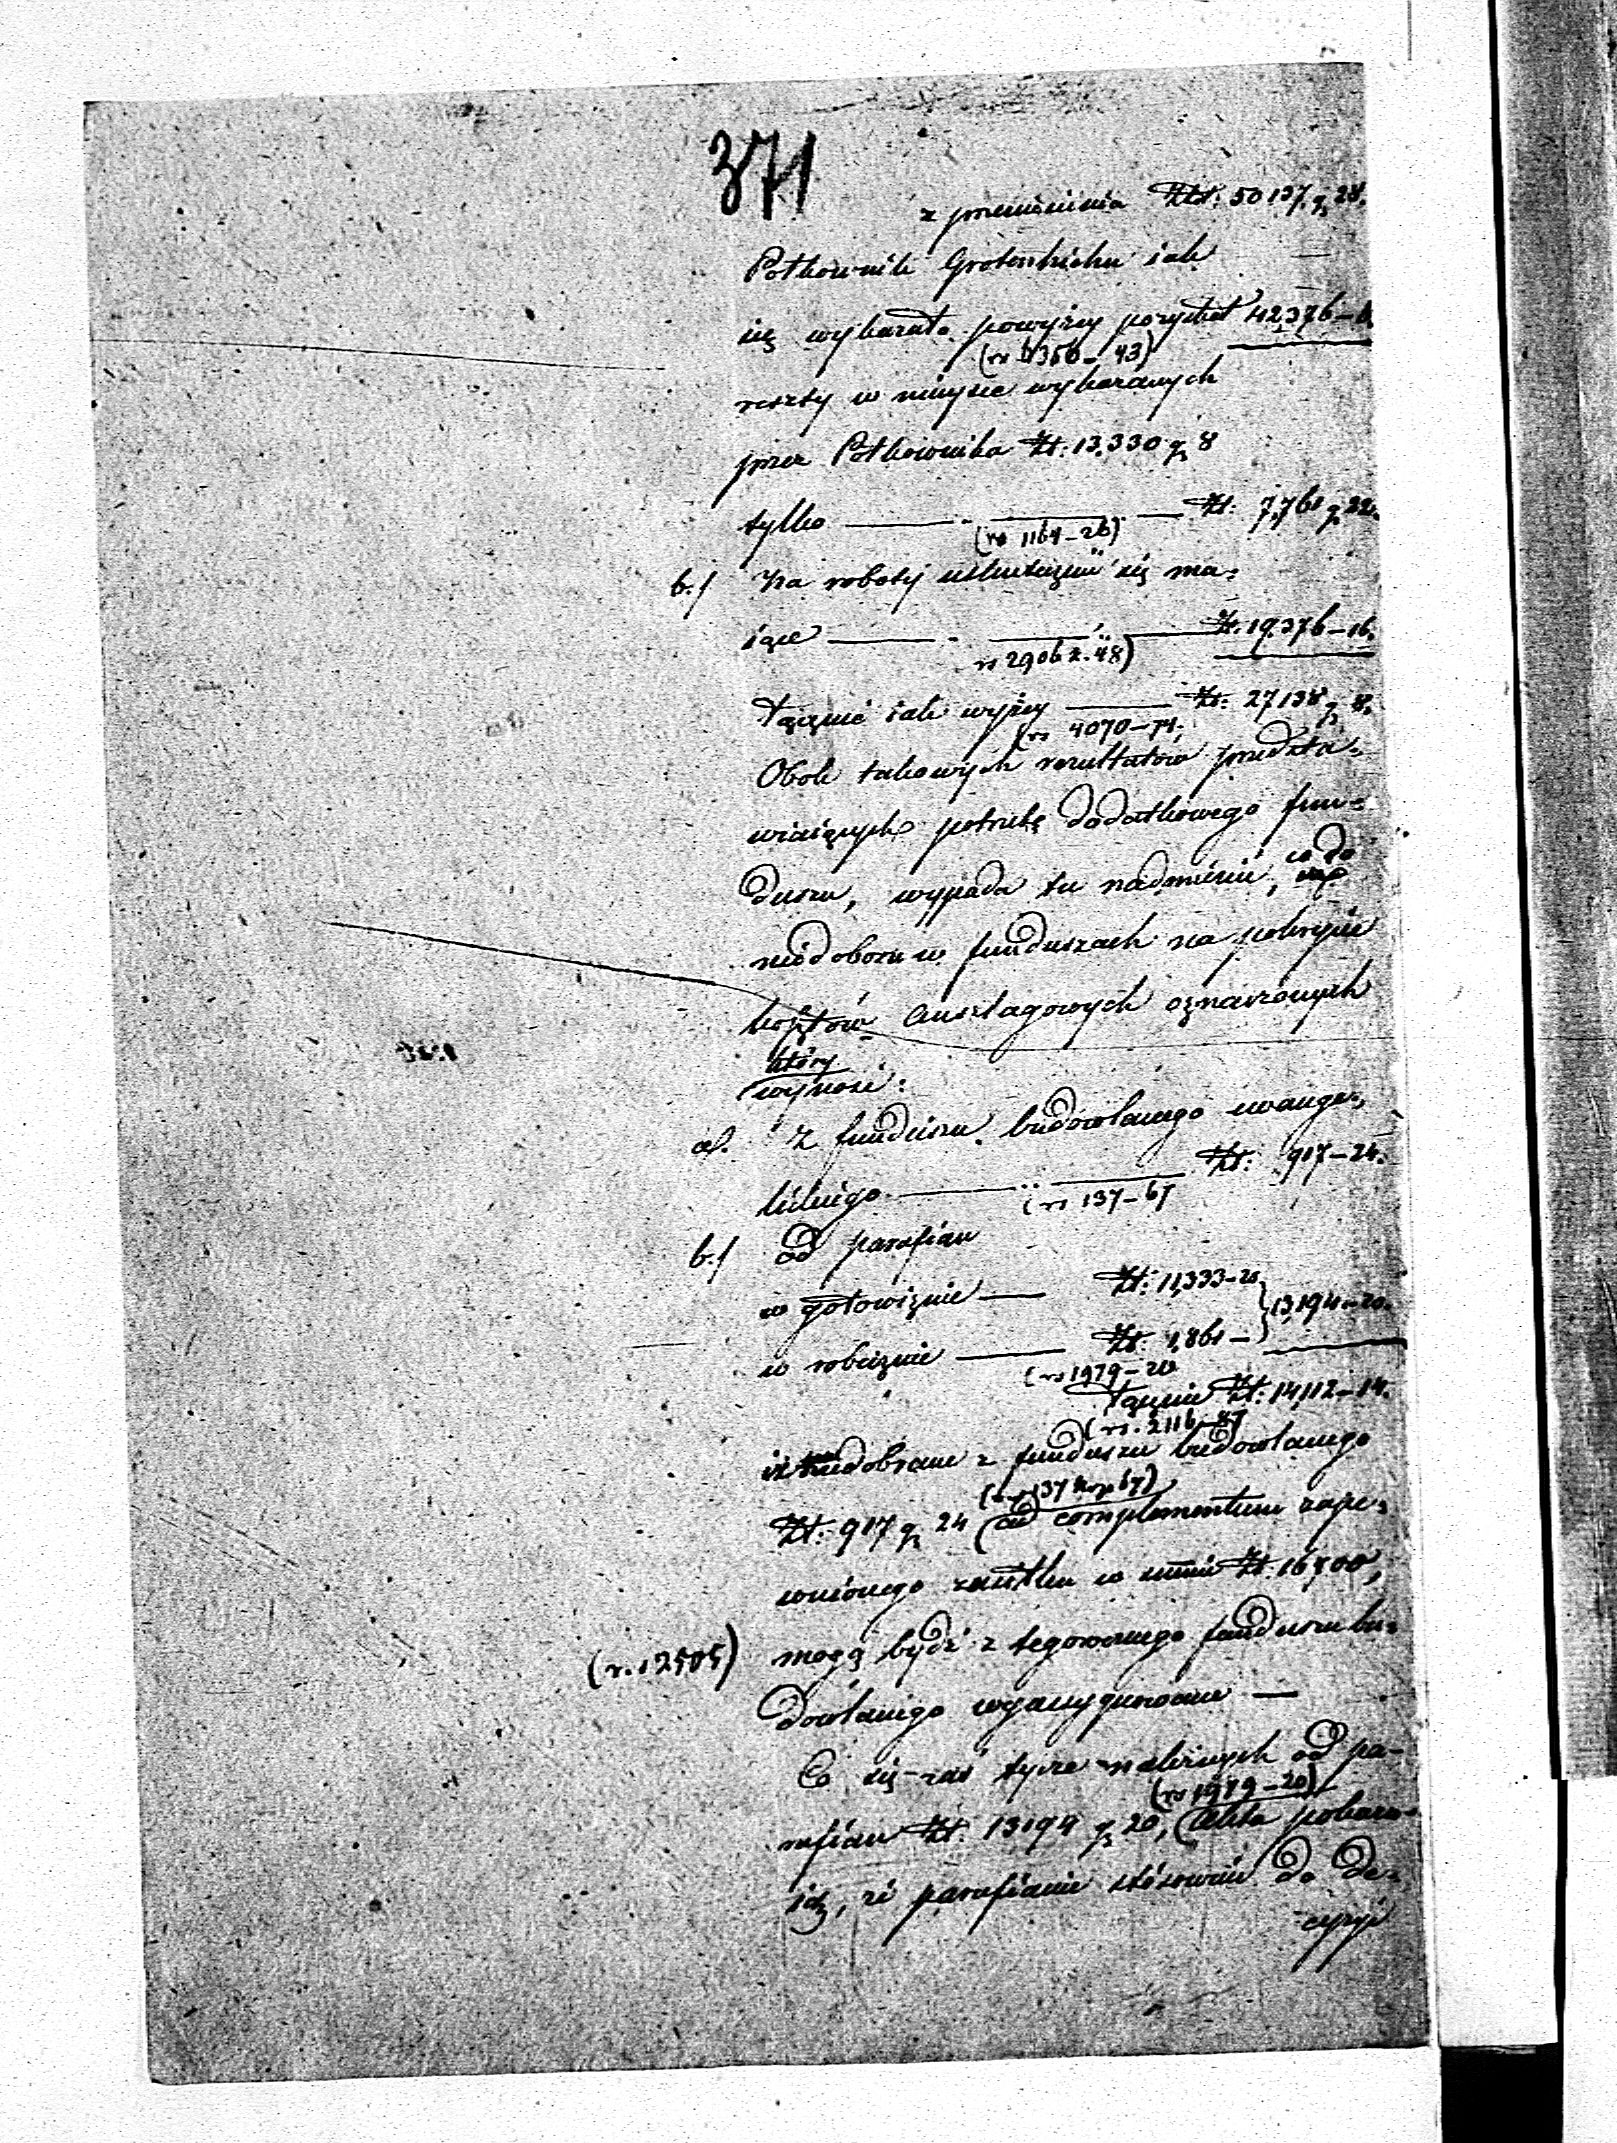 371
z przeniesienia Złt: 50137. g 28.
Półkownik Grotenhielm iak
się wykazało powyżey pozyskał 42376 – 6.
(rs 6356 – 43)
reszty w mieysce wykazanych
przez Półkownika Zł: 13.330 g 8
tylko — — — Zł: 7,761 g 22.
(rs 1164 – 26)
b./ Na roboty uskutecznić się ma:
iące — — — Zł. 19.376 – 16.
rs 2906 k. 48)
Łącznie iak wyżey — Zł: 27138 g 8.
(rs 4070 – 74;
Obok takowych rezultatów przedsta:
wiaiących potrzebę dodatkowego fun:
duszu, wypada tu nadmienić, co do
niedoboru w funduszach na pokrycie
kosztów Anszlagowych oznaczonych
który
wynosi:
a/. Z funduszu budowlanego ewange:
lickiego — — Złt: 917 – 24.
(rs 137 – 67
b./ od parafian
w gotowiźnie — Zł: 11,333 – 20
13,194 – 20.
w robciźnie — Zł: 1,861 –
(rs 1979 – 20
Łącznie Zł: 14,112 – 14.
(rs. 2116 – 87
iż niedobrane z funduszu budowlanego
(rs 137 kop 67)
Zł: 917 g 24 ad complementum zape:
wnionego zasiłku w summie Zł. 16700,
(r. s 2505) mogą bydź z tegorocznego funduszu bu:
dowlanego wyassygnowane —
Co się zaś tycze należnych od pa-
(rs 1979 – 20)
rafian Zł: 13194 g 20, Akta pokazu-
ią, że parafianie stósownie do De-
cyzyi